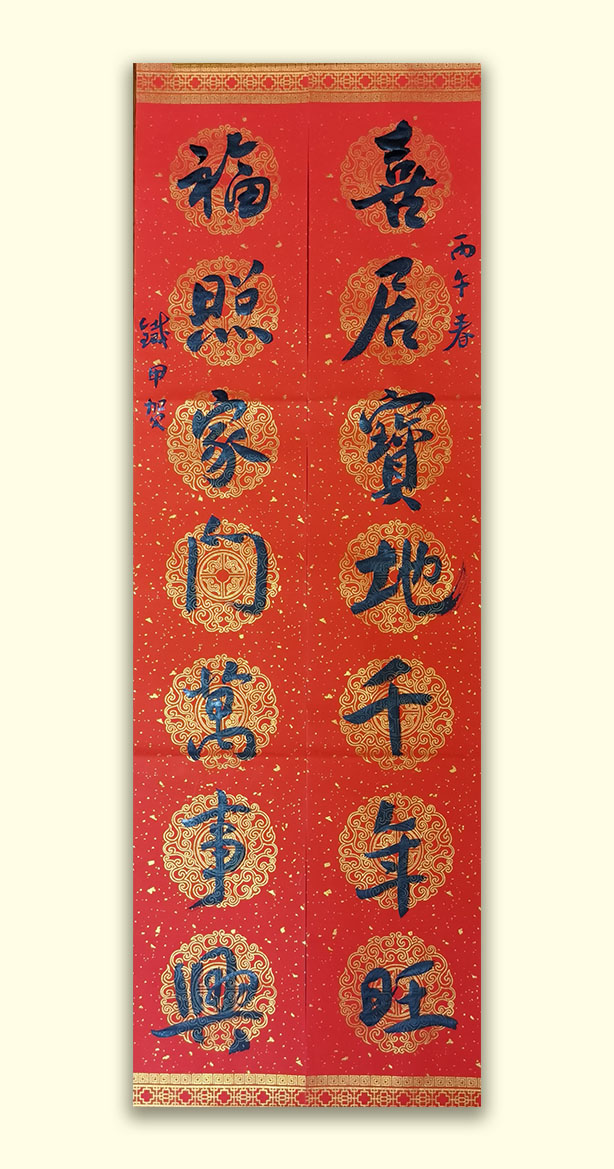 喜居寶地千年旺
丙午春
福照家门萬事興
鐵甲贺